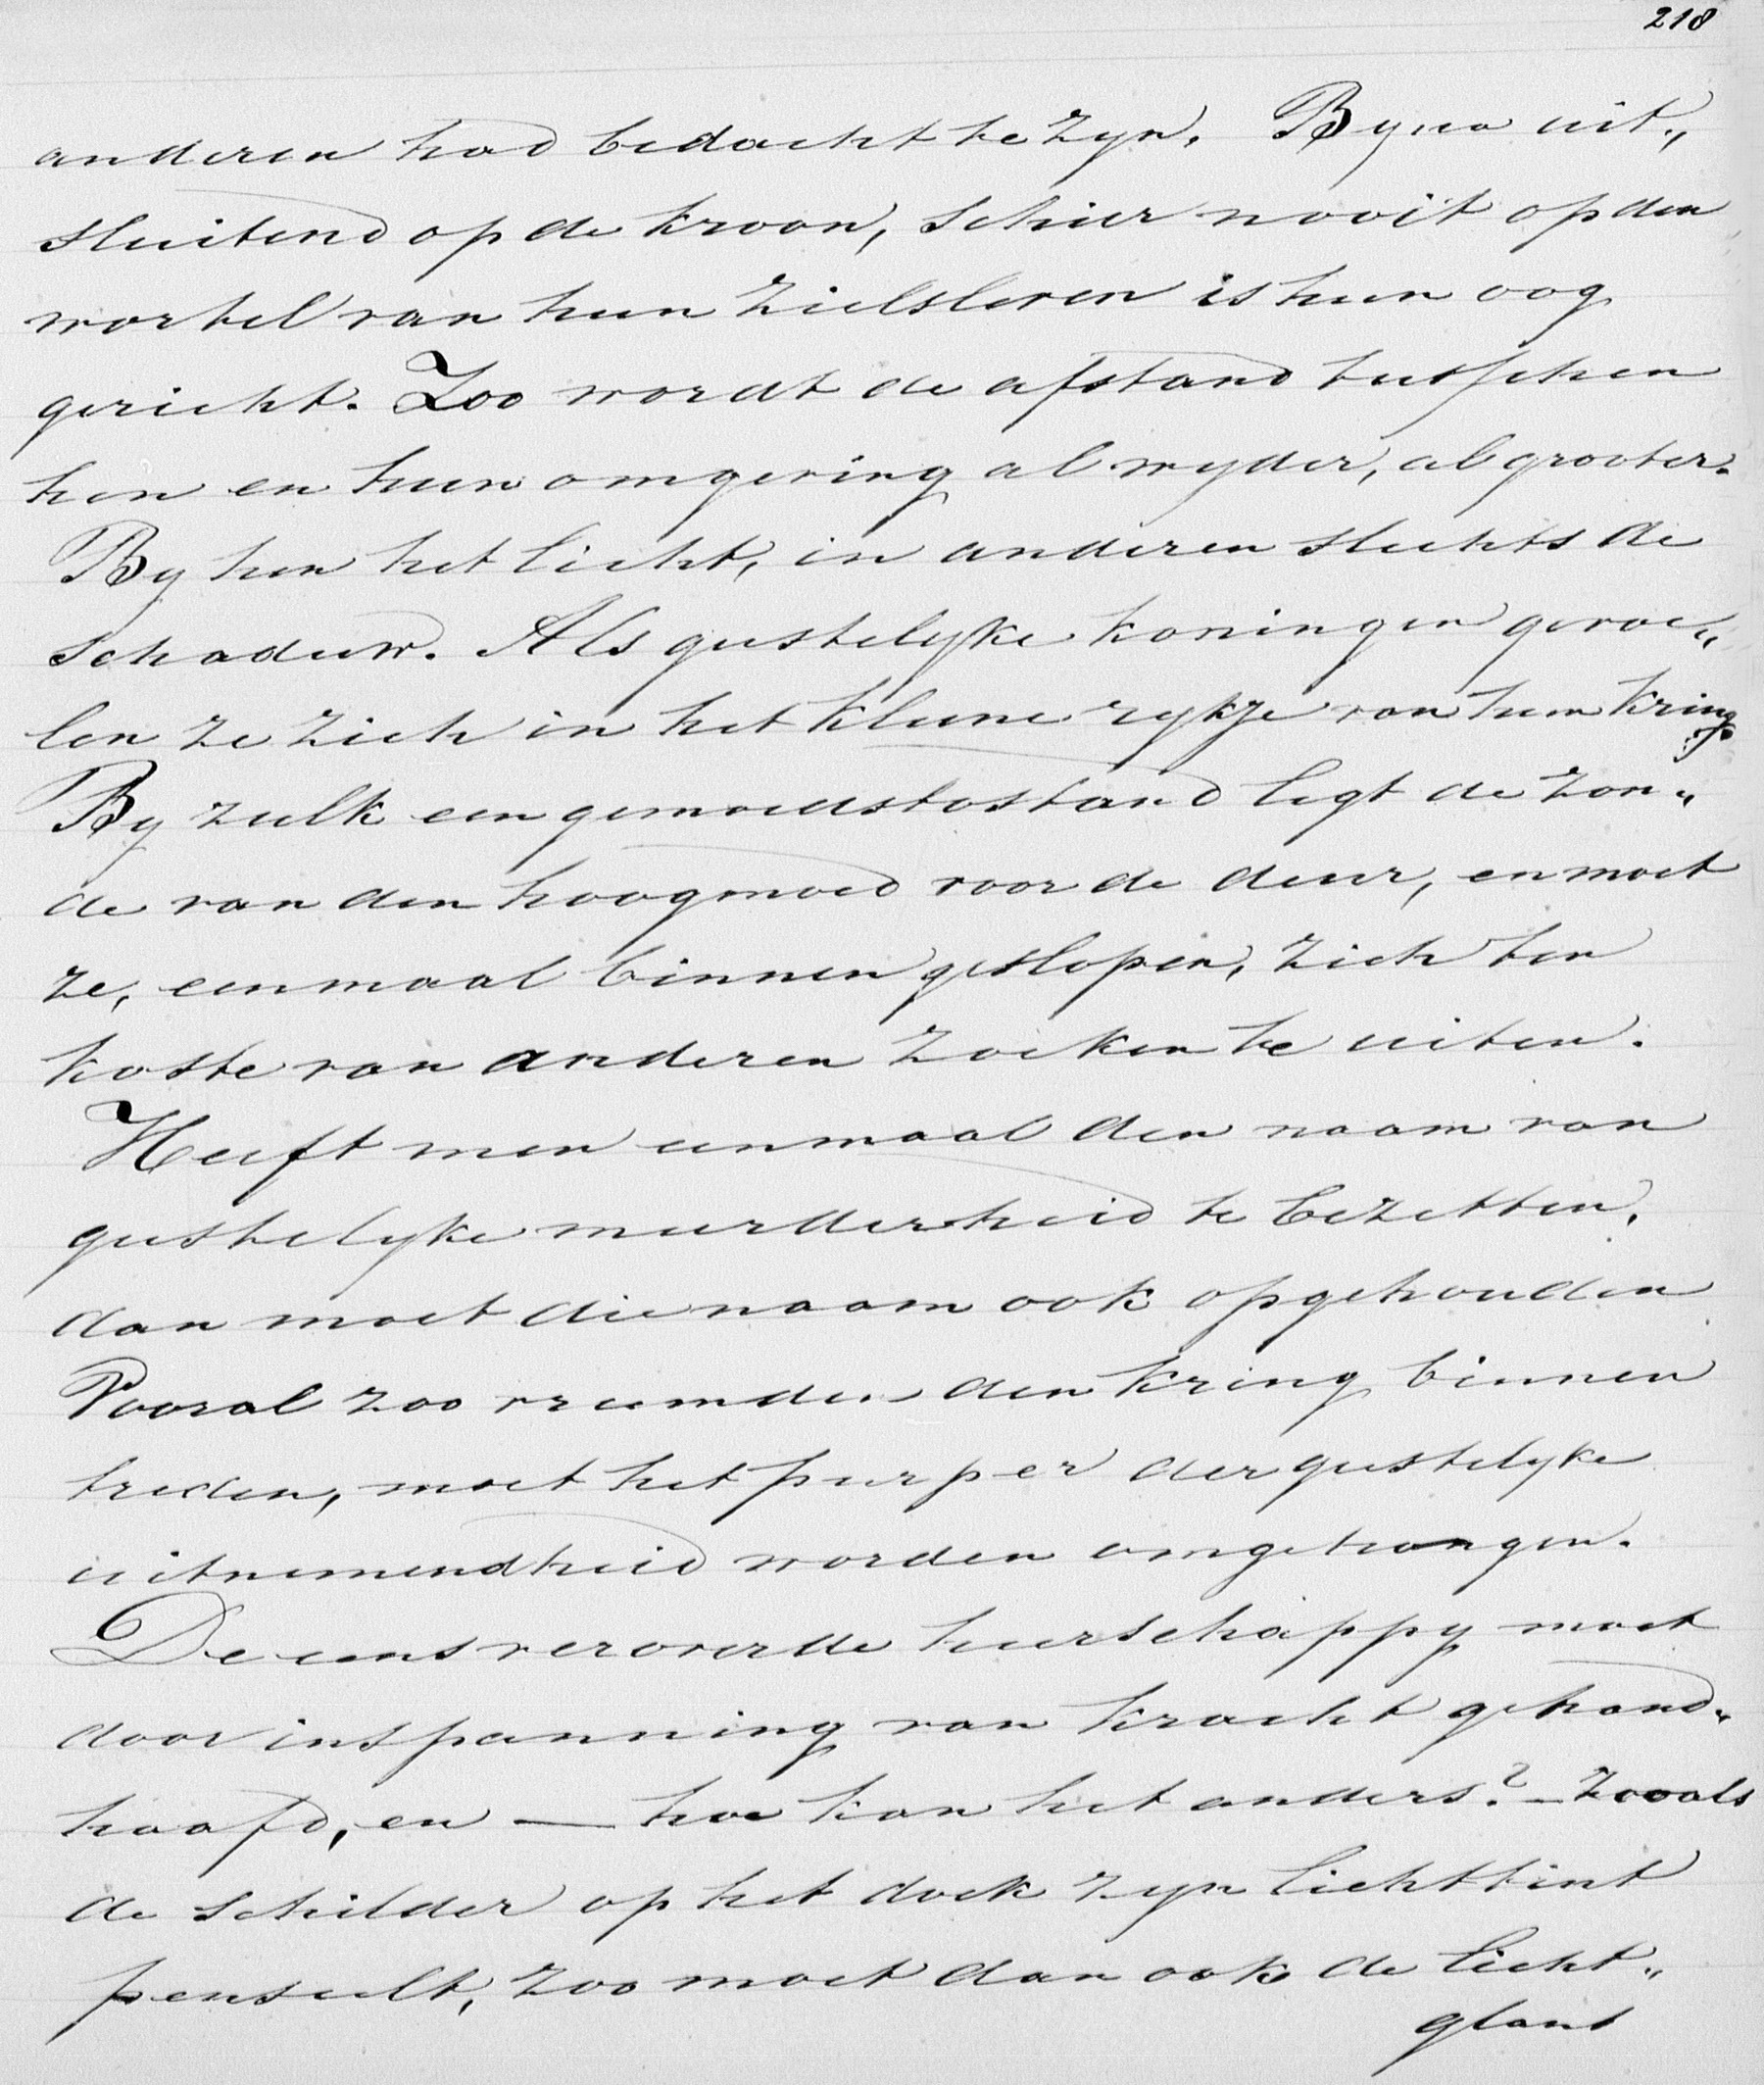 218
anderen had bedacht te zyn. Byna uit„
sluitend op de kroon, schier nooit op den
wortel van hun zielsleven is hun oog
gericht. Zoo wordt de afstand tusschen
hen en hun omgeving al wyder, al grooter.
By hen het licht, in anderen slechts de
schaduw. Als geestelyke koningen gevoe„
len ze zich in het kleine rykje van hun kring.
By zulk een gemoedstoestand ligt de zon„
de van den hoogmoed voor de deur, en moet
ze, eenmaal binnen geslopen, zich ten
koste van anderen zoeken te uiten.
Heeft men eenmaal den naam van
geestelyke meerderheid te bezitten,
dan moet die naam ook opgehouden
Vooral zoo vreemden den kring binnen
treden, moet het purper der geestelyke
uitnemendheid worden omgehangen.
De eens veroverde heerschappy moet
door inspanning van kracht gehand„
haafd, en — hoe kan het anders? — zooals
de schilder op het doek zyn lichttint
penseelt, zoo moet dan ook de licht„
glans